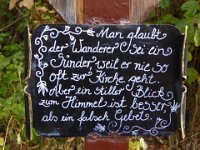 Man glaubt
der Wanderer sei ein
Sünder, weil er nie so
oft zur Kirche geht.
Aber ein stiller Blick
zum Himmel ist besser
als ein falsch Gebet.